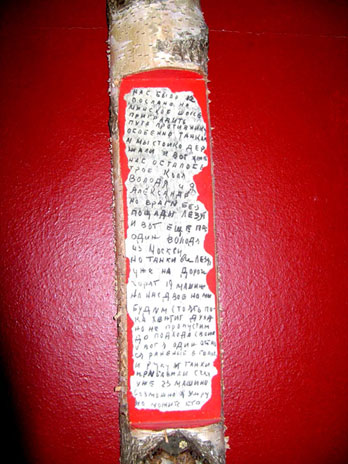 НАС БЫЛО 12
ПОСЛАНО НА
МИНСКОЕ ШОССЕ
ПРЕГРАДИТЬ
ПУТЬ ПРОТИВНИКУ
ОСОБЕННО ТАНКАМ
И МЫ СТОЙКО ДЕР
ЖАЛИ И ВОТ УЖЕ
НАС ОСТАЛОСЬ
ТРОЕ КОЛЯ
ВОЛОДЯ И Я
АЛЕКСАНДР
НО ВРАГИ БЕЗ
ПОЩАДЫ ЛЕЗУТ
И ВОТ ЕЩЕ ПАЛ
ОДИН ВОЛОДЯ
ИЗ МОСКВЫ
НО ТАНКИ ВСЕ ЛЕЗУТ
УЖЕ НА ДОРОГЕ
ГОРЯТ 19 МАШИН
НО НАС ДВОЕ НО МЫ
БУДЕМ СТОЯТЬ ПО
КА ХВАТИТ ДУХА
НО НЕ ПРОПУСТИМ
ДО ПОДХОДА СВОИХ
И ВОТ Я ОДИН ОСТАЛСЯ
РАНЕНЫЙ В ГОЛОВУ
И РУКУ И ТАНКИ
ПРИБАВИЛИ СЧЕТ
УЖЕ 23 МАШИНЫ
ВОЗМОЖНО Я УМРУ